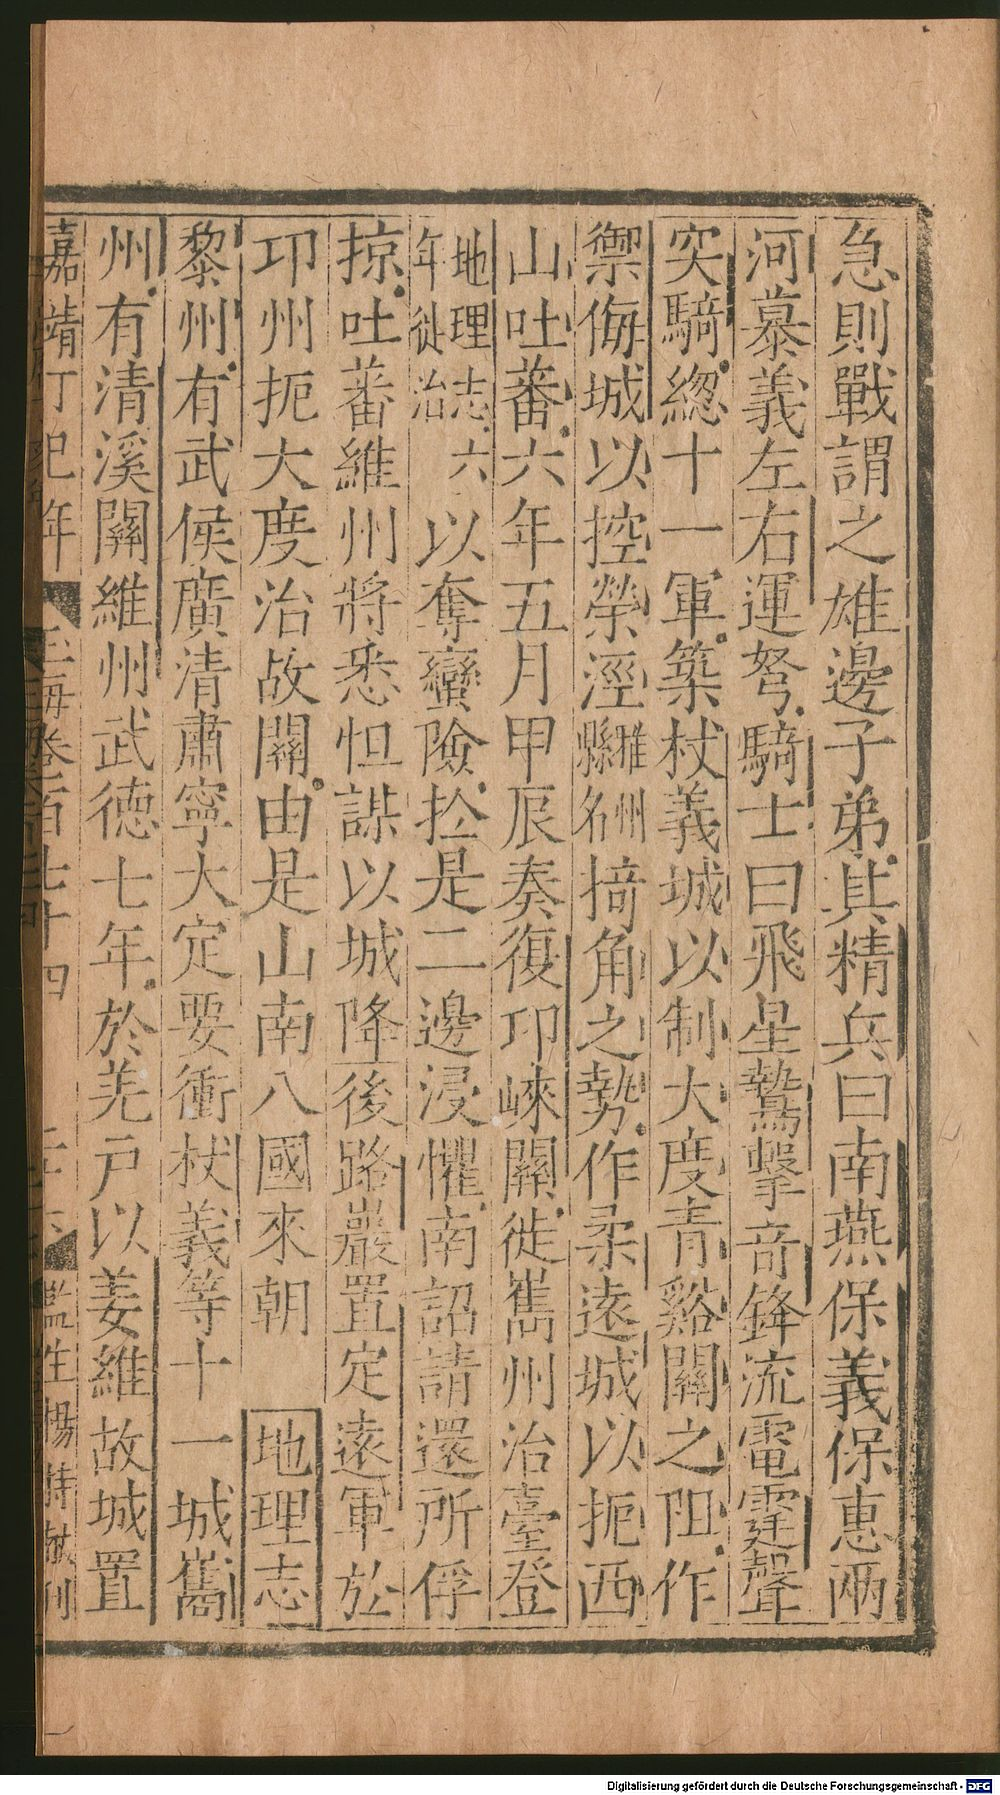 急則戰謂之雄邊子弟其精兵曰南燕保義保惠兩
河慕義左右運弩騎士曰飛星鷙擊奇鋒流電霆聲
突騎總十一軍築杖義城以制大度青谿關之阻作
禦侮城以控榮涇
雅州
縣名
掎角之勢作柔遠城以扼西
山吐蕃六年五月甲辰奏復邛崍關徙巂州治臺登
地理志六
年徙治
以奪蠻險於是二邊浸懼南詔請還所俘
掠吐蕃維州將悉怛謀以城降後路巖置定遠軍於
邛州扼大度治故關由是山南八國來朝
地理志
黎州有武侯廣清肅寧大定要衝杖義等十一城巂
州有清溪關維州武德七年於羌戶以姜維故城置
嘉靖丁 年
玉海卷百七十四
監生楊 刊
Digitalisierung gefördert durch die Deutsche Forschungsgemeinschaft - DFG